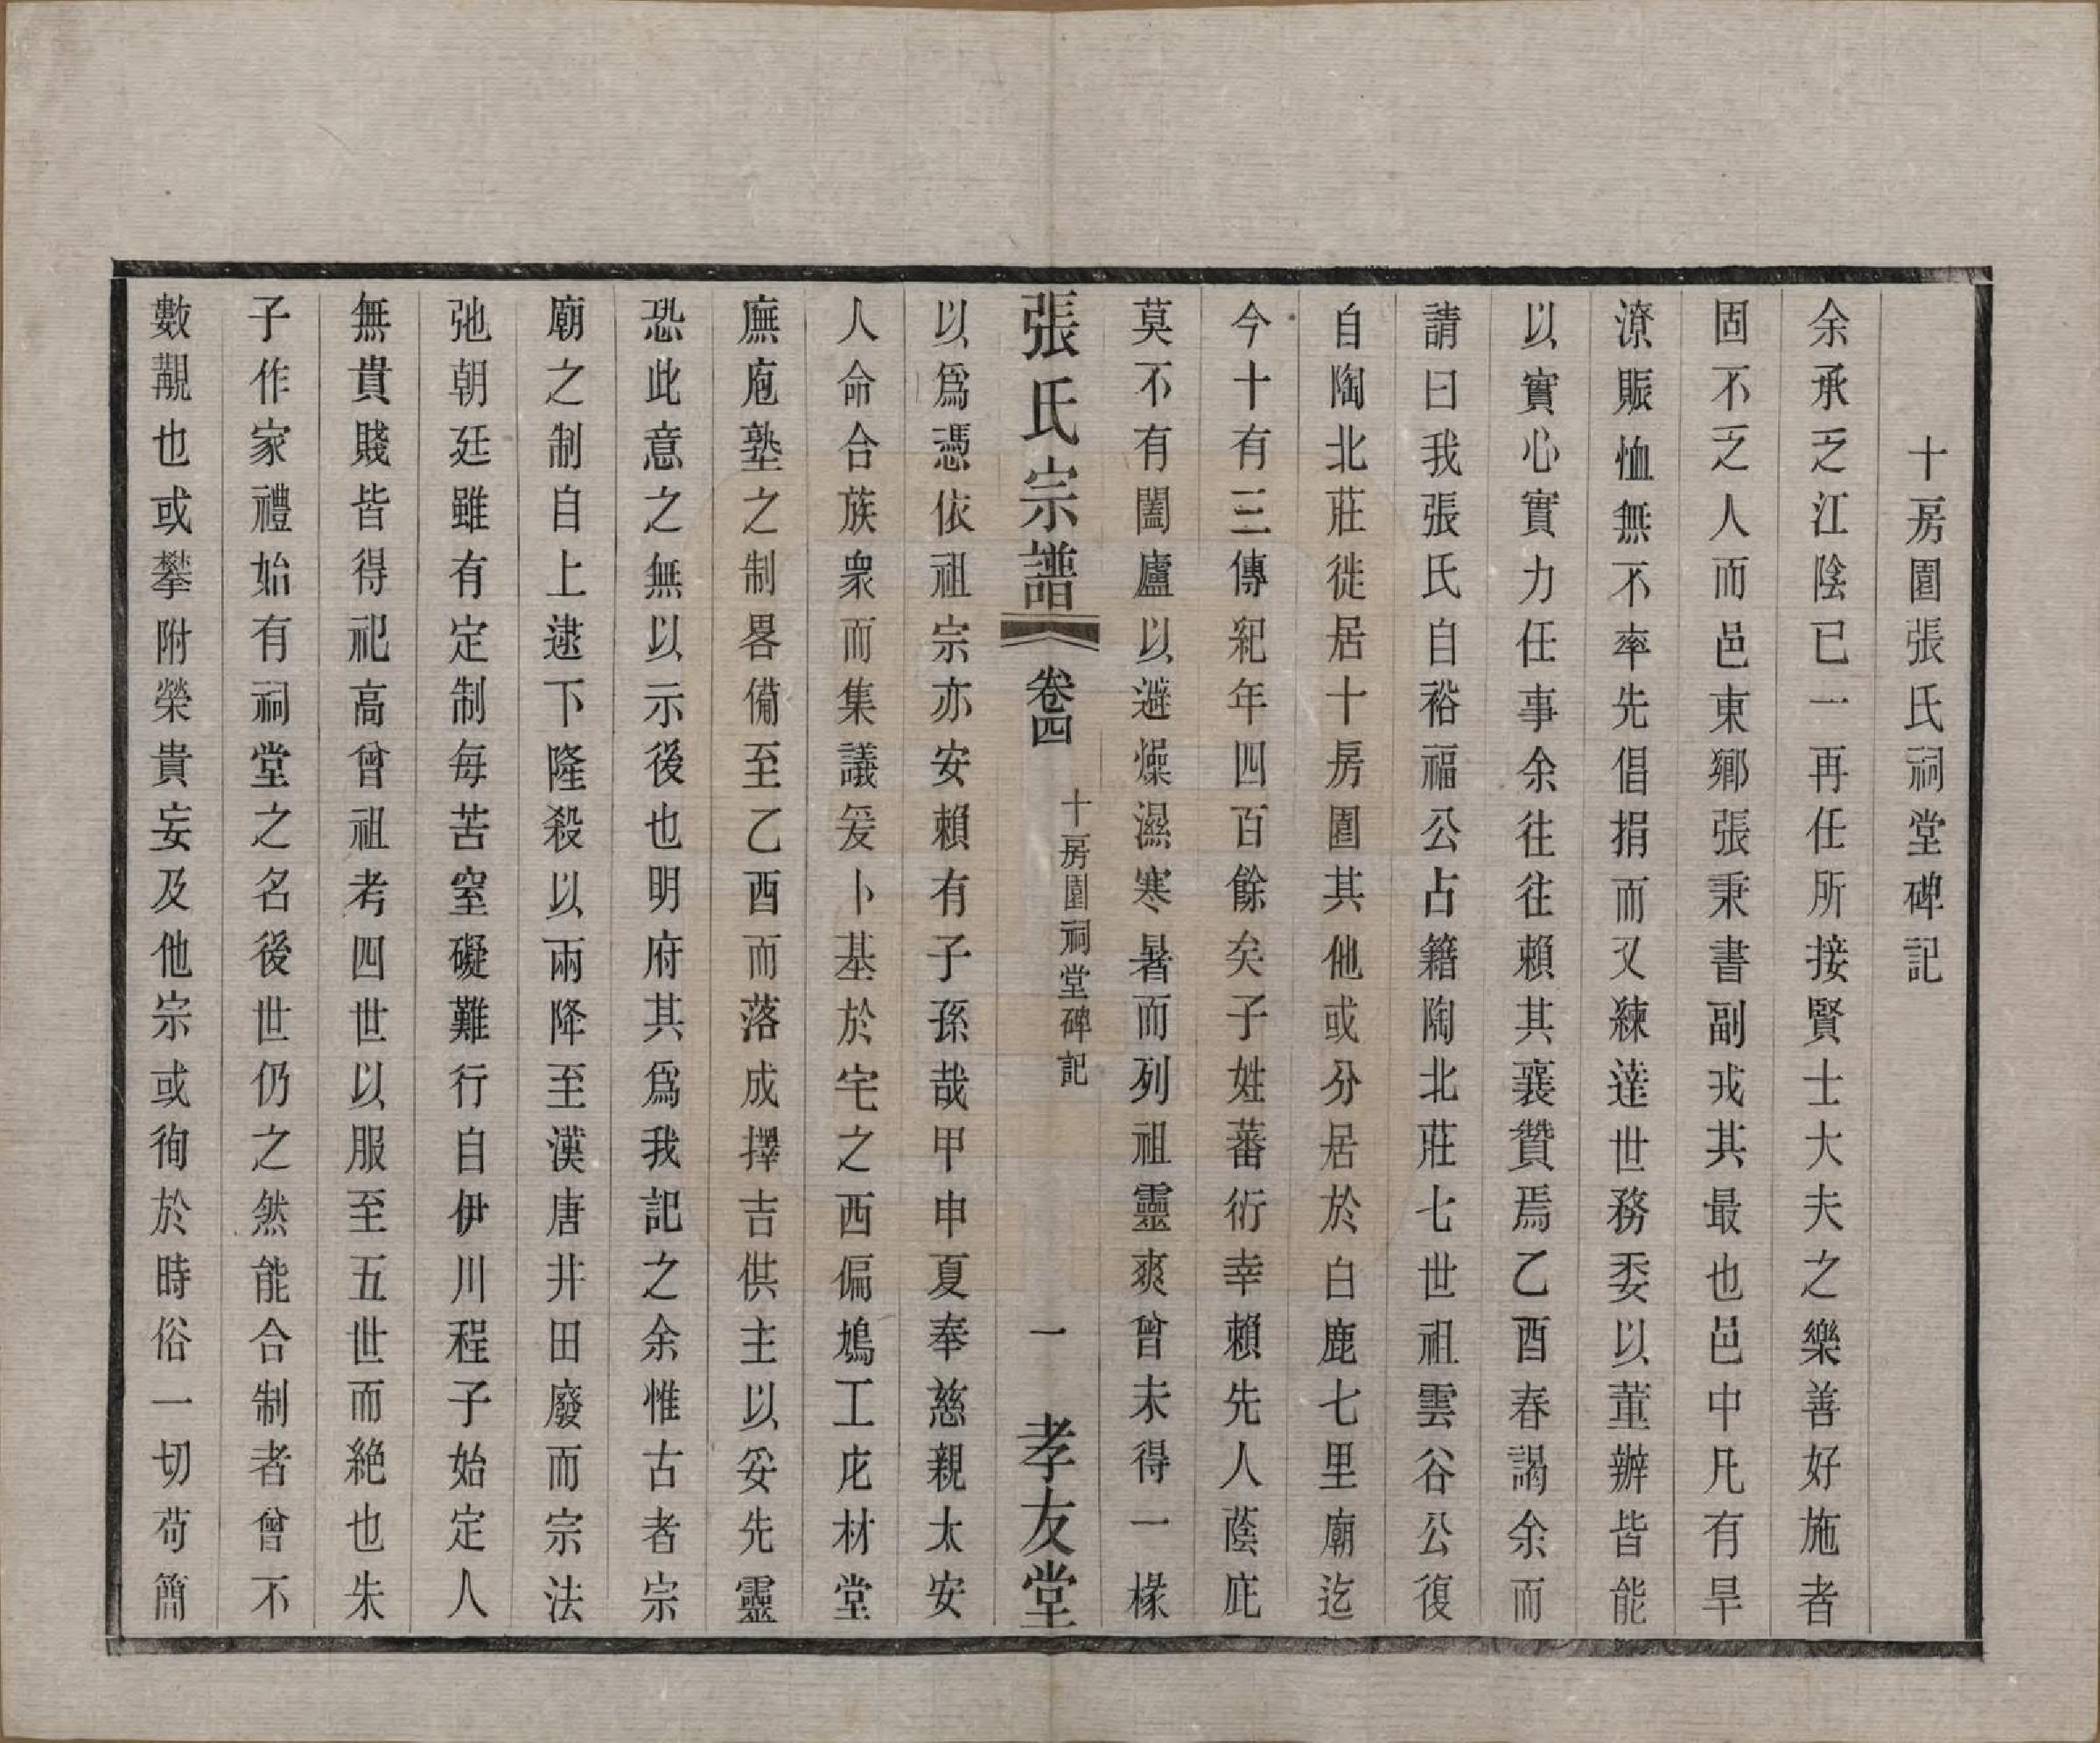 十房園張氏祠堂碑記
余承乏江陰已一再任所接賢士大夫之樂善好施者
固不乏人而邑東鄉張秉書副戎其最也邑中凡有旱
潦賑恤無不率先倡捐而又練達世務委以董辦皆能
以實心實力任事余往往賴其襄贊焉乙酉春謁余而
請曰我張氏自裕福公占籍陶北莊七世祖雲谷公復
自陶北莊徙居十房園其他或分居於白鹿七里廟迄
今十有三傳紀年四百餘矣子姓蕃衍幸賴先人蔭庇
莫不有闔廬以避燥濕寒暑而列祖靈爽曾未得一椽
張氏宗譜 卷四 十房園祠堂碑記 一 孝友堂
以爲憑依祖宗亦安賴有子孫哉甲申夏奉慈親太安
人命合族衆而集議爰卜基於宅之西偏鳩工庀材堂
廡庖塾之制畧備至乙酉而落成擇吉供主以妥先靈
恐此意之無以示後也明府其爲我記之余惟古者宗
廟之制自上逮下隆殺以兩降至漢唐井田廢而宗法
弛朝廷雖有定制每苦窒礙難行自伊川程子始定人
無貴賤皆得祀高曾祖考四世以服至五世而絕也朱
子作家禮始有祠堂之名後世仍之然能合制者曾不
數覯也或攀附榮貴妄及他宗或徇於時俗一切苟簡